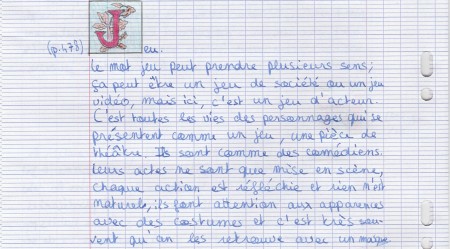 (p.478) Jeu.
Le mot jeu peut prendre plusieurs sens;
ça peut être un jeu de société ou un jeu
vidéo, mais ici, c'est un jeu d'acteur.
C'est toutes les vies des personnages qui se
présentent comme un jeu, une pièce de
théâtre. Ils sont comme des comédiens.
Leurs actes ne sont que mise en scène,
chaque action est réfléchie et rien n'est
naturel, ils font attention aux apparences
avec des costumes et c'est très sou-
vent qu'on les retrouve avec un masque